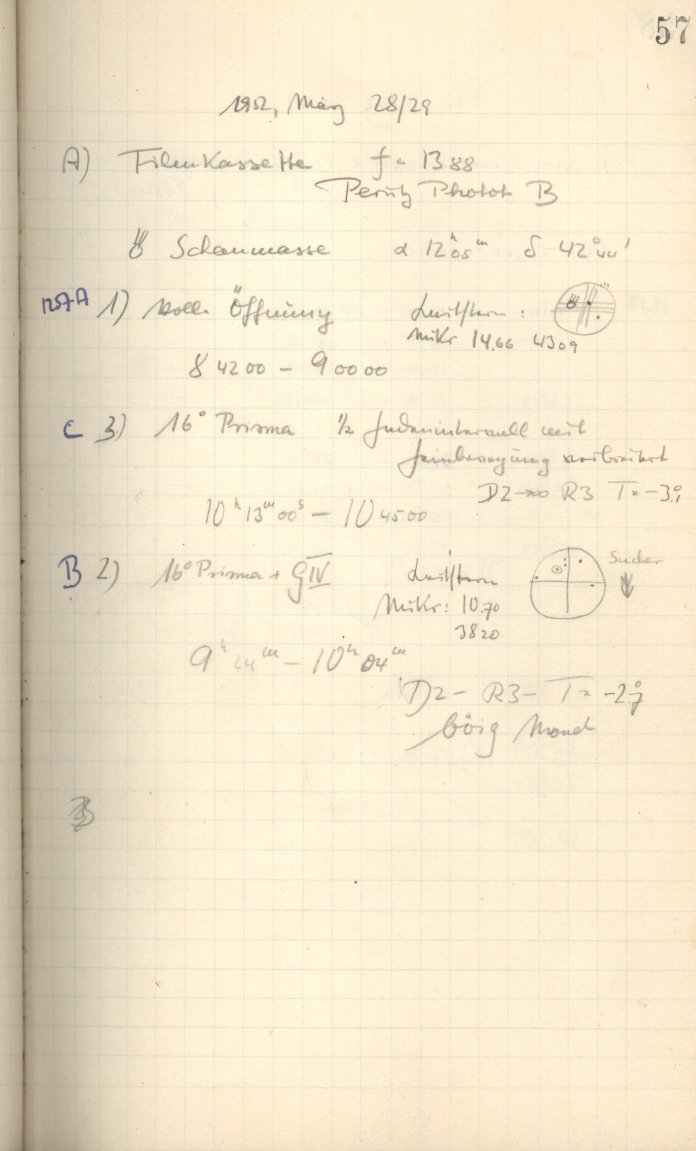 57
1952, März 28/29
A) Filmkassette f = 1388
Perutz Photot B
Schaumasse α 12ʰ05ᵐ δ 42°44'
1257A 1) volle Öffnung Leitstern :
Mikr 14.66 4309
8 42 00 – 9 00 00
C 3) 16° Prisma ½ Fadenintervall mit
Feinbewegung verbreitert
D2 R3 T = -3°,
10ʰ 13ᵐ 00ˢ – 10 45 00
B 2) 16° Prisma + GIV Leitstern Sucher
Mikr: 10.70
3820
9ʰ 24ᵐ – 10ʰ 04ᵐ
D2 – R3 – T = -2°,7
böig Mond